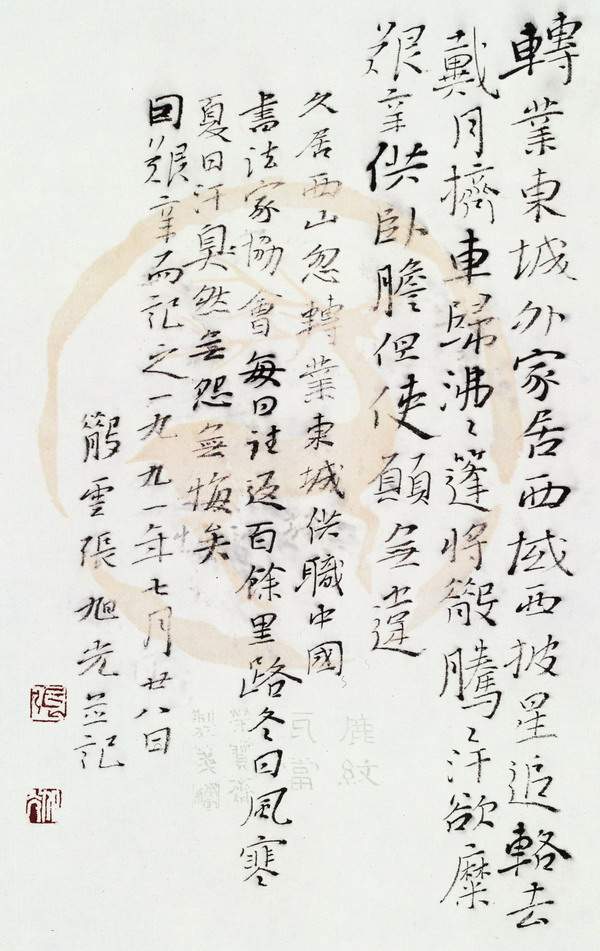 轉業東城外家居西域西披星追輅去
戴月擠車歸沸〻篷將騰〻汗欲糜
艱辛供臥膽但使願無違
久居西山忽轉業東城供職中國
書法家協會每日往返百餘里路冬日風寒
夏日汗臭然無怨無悔矣
囙艱辛而記之一九九一年七月廿八日
雲張旭光並記
張